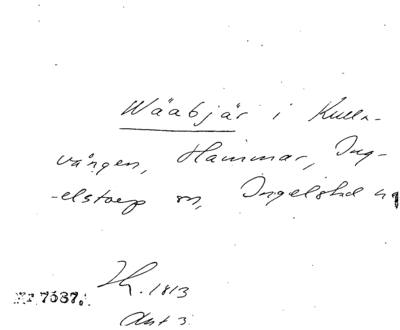 Wäabjär i Kulla-
vången, Hammar, Ing-
elstorp sn, Ingelstad h
Nr 7387.
1813